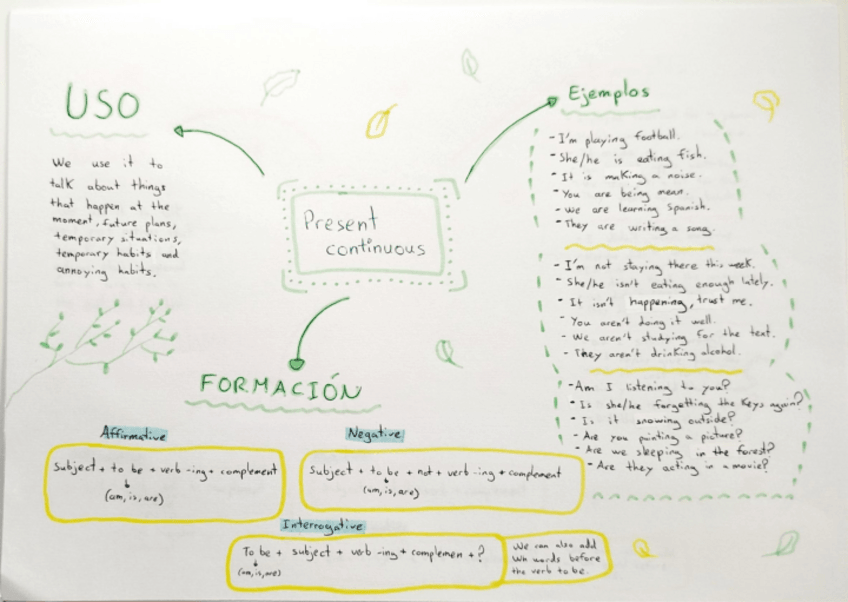 USO
We use it to
talk about things
that happen at the
moment, future plans,
temporary situations,
temporary habits and
annoying habits.
Present
continuous
Ejemplos
- I'm playing football.
- She/he is eating fish.
- It is making a noise.
- You are being mean.
- We are learning Spanish.
- They are writing a song.
- I'm not staying there this week.
- She/he isn't eating enough lately.
- It isn't happening, trust me.
- You aren't doing it well.
- We aren't studying for the test.
- They aren't drinking alcohol.
- Am I listening to you?
- Is she/he forgetting the keys again?
- Is it snowing outside?
- Are you painting a picture?
- Are we sleeping in the forest?
- Are they acting in a movie?
FORMACIÓN
Affirmative
Subject + to be + verb -ing + complement
(am, is, are)
Negative
Subject + to be + not + verb -ing + complement
(am, is, are)
Interrogative
To be + subject + verb -ing + complemen + ?
(am, is, are)
We can also add
Wh words before
the verb to be.